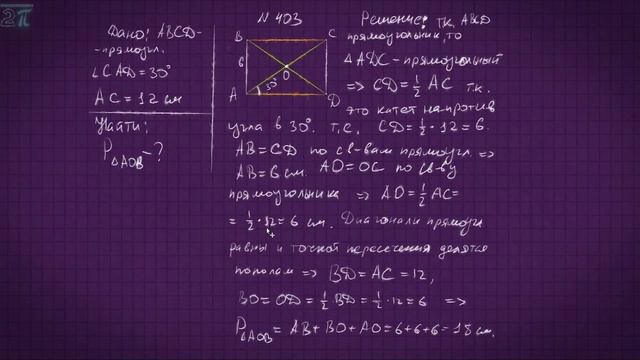 2π
N 403
Дано: ABCD-
-прямоуг.
∠CAD=30°
AC=12 см
Найти:
P△AOB-?
B
C
6
O
30°
A
D
Решение: т.к. ABCD
прямоугольник, то
△ADC - прямоугольный
=> CD=½ AC т.к.
это катет напротив
угла в 30°. т.е., CD=½·12=6.
AB=CD по св-вам прямоуг. =>
AB=6 см. AO=OC по св-ву
прямоугольника => AO=½AC=
=½·12=6 см. Диагонали прямоуг
равны и точкой пересечения делятся
пополам => BD=AC=12,
BO=OD=½BD=½·12=6 =>
P△AOB=AB+BO+AO=6+6+6=18 см.